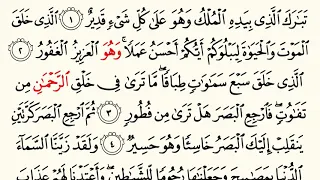 تَبَٰرَكَ ٱلَّذِى بِيَدِهِ ٱلْمُلْكُ وَهُوَ عَلَىٰ كُلِّ شَىْءٍ قَدِيرٌ ١ ٱلَّذِى خَلَقَ
ٱلْمَوْتَ وَٱلْحَيَوٰةَ لِيَبْلُوَكُمْ أَيُّكُمْ أَحْسَنُ عَمَلًا ۚ وَهُوَ ٱلْعَزِيزُ ٱلْغَفُورُ ٢
ٱلَّذِى خَلَقَ سَبْعَ سَمَٰوَٰتٍ طِبَاقًا ۖ مَّا تَرَىٰ فِى خَلْقِ ٱلرَّحْمَٰنِ مِن
تَفَٰوُتٍ ۖ فَٱرْجِعِ ٱلْبَصَرَ هَلْ تَرَىٰ مِن فُطُورٍ ٣ ثُمَّ ٱرْجِعِ ٱلْبَصَرَ كَرَّتَيْنِ
يَنقَلِبْ إِلَيْكَ ٱلْبَصَرُ خَاسِئًا وَهُوَ حَسِيرٌ ٤ وَلَقَدْ زَيَّنَّا ٱلسَّمَآءَ
ٱلدُّنْيَا بِمَصَٰبِيحَ وَجَعَلْنَٰهَا رُجُومًا لِّلشَّيَٰطِينِ ۖ وَأَعْتَدْنَا لَهُمْ عَذَابَ